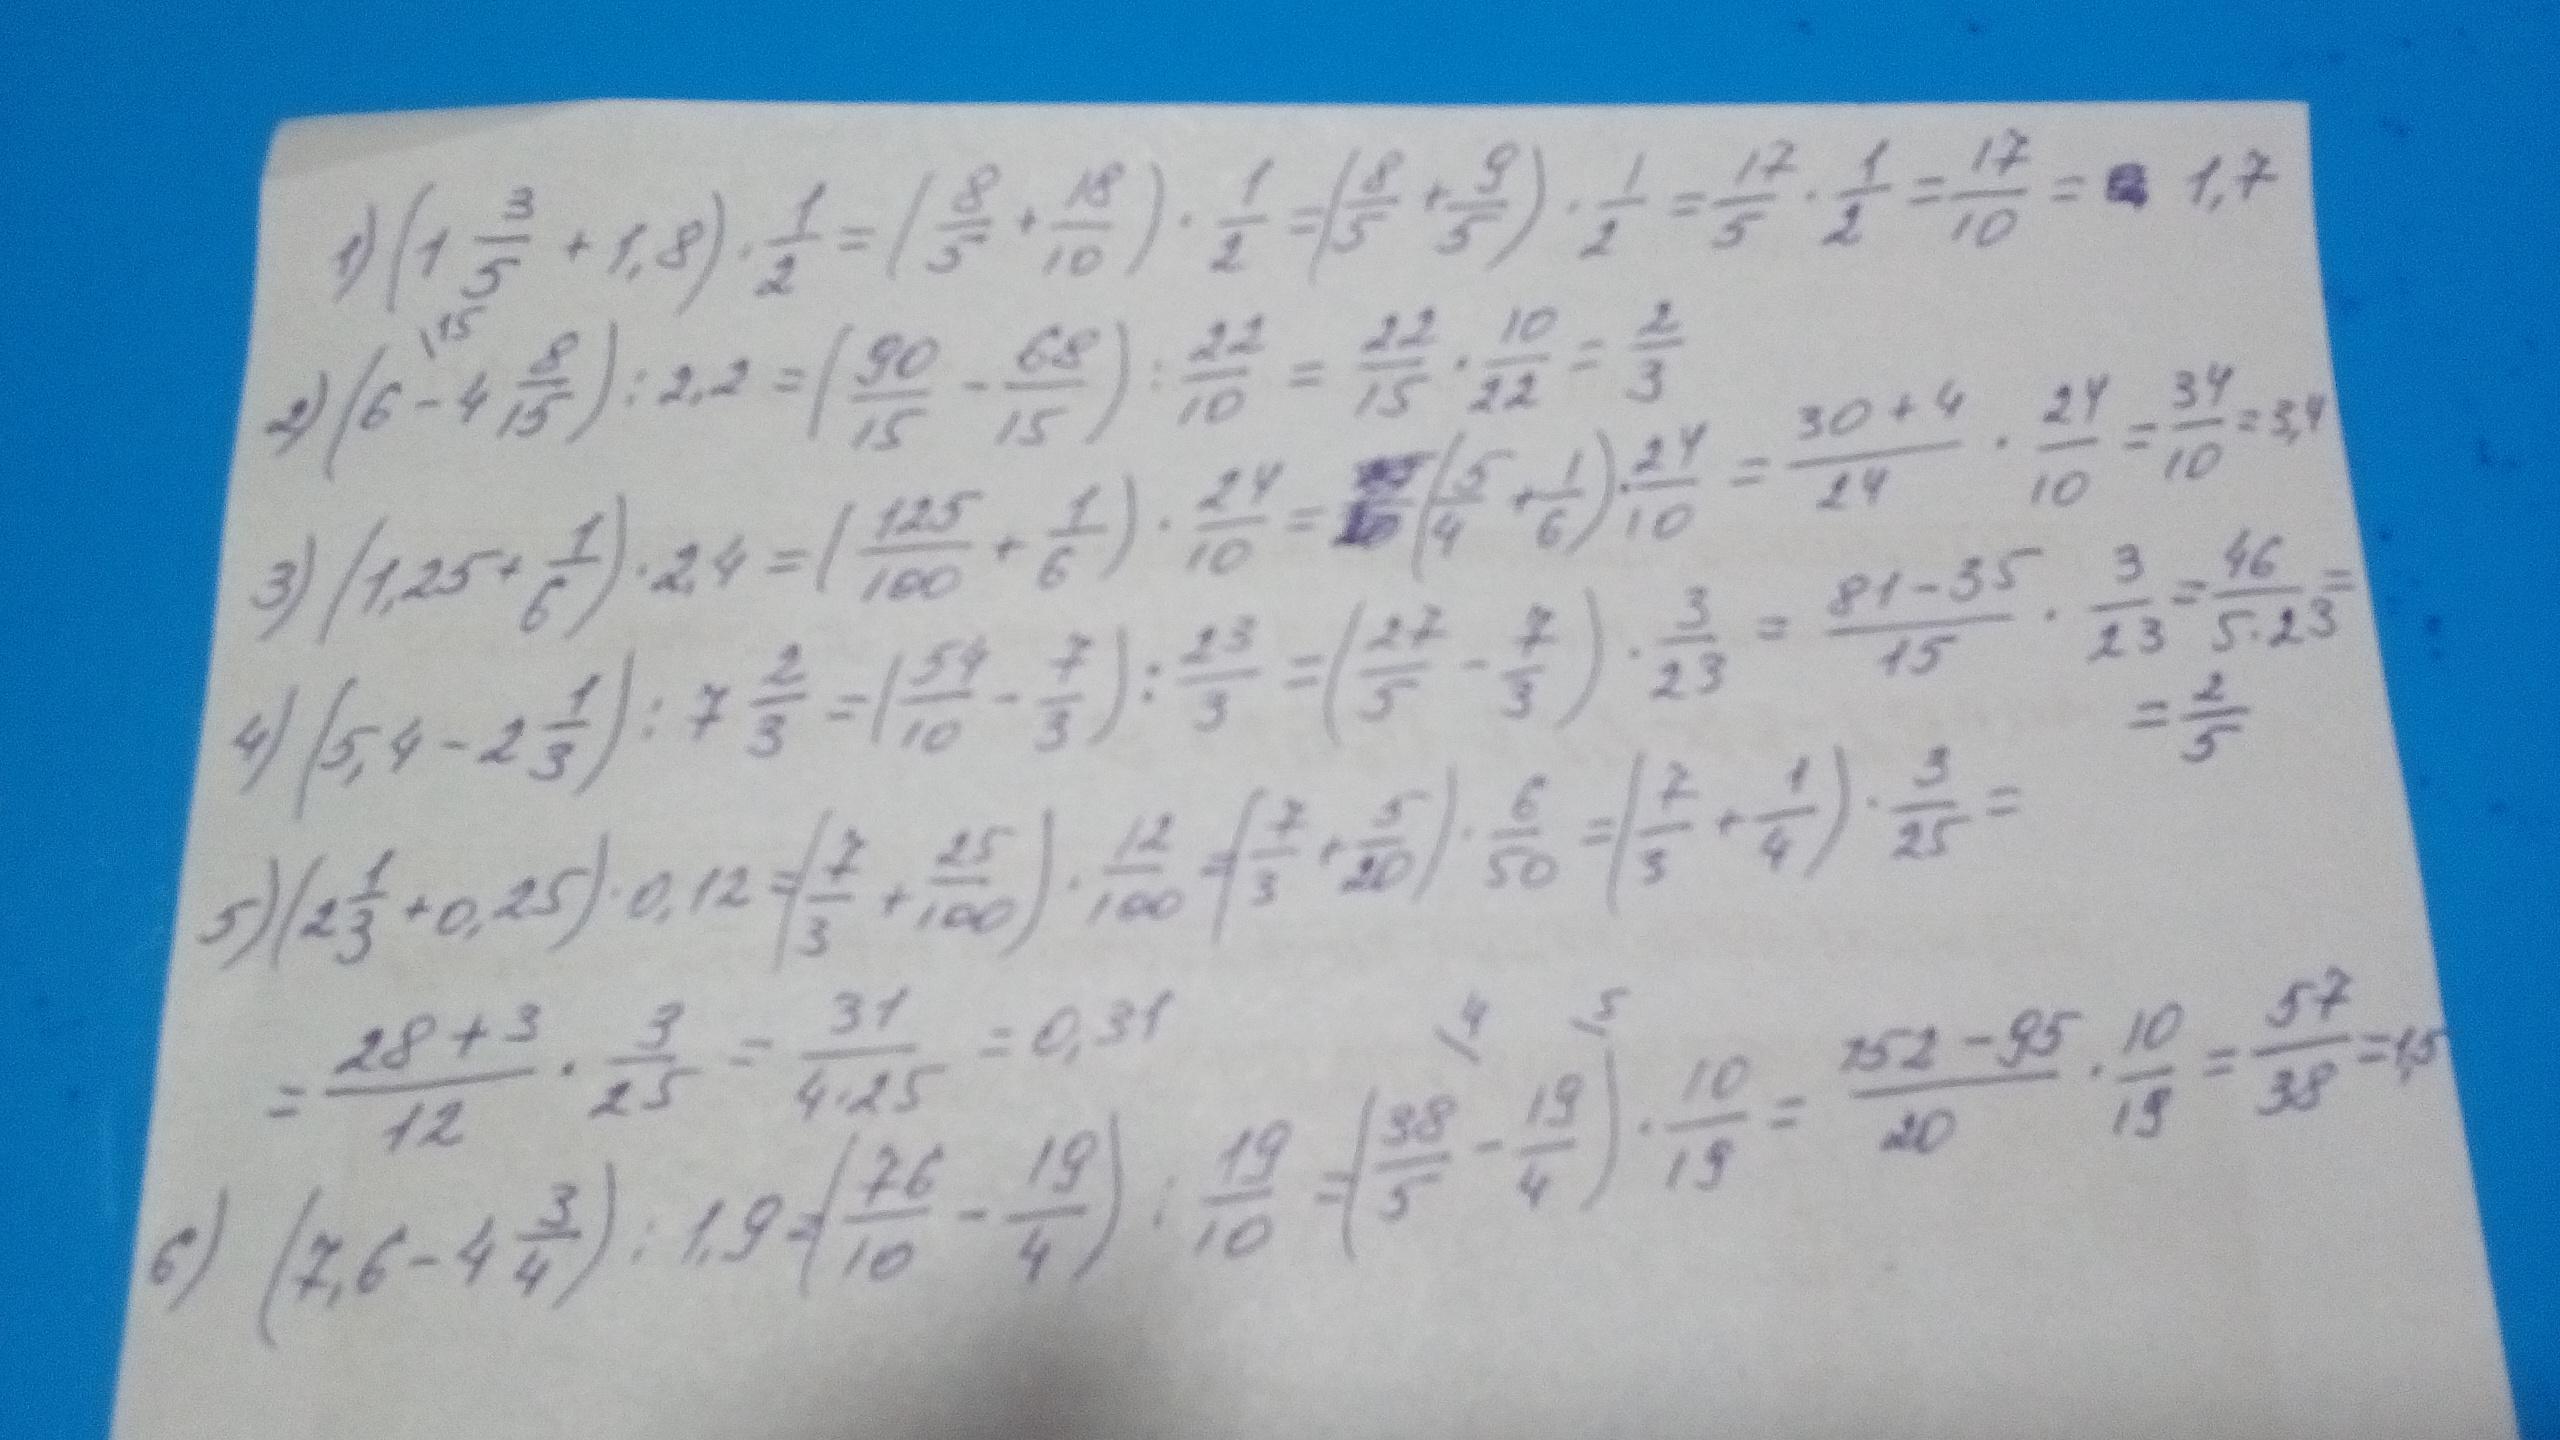 1) (1 3/5 + 1,8) · 1/2 = (8/5 + 18/10) · 1/2 = (8/5 + 9/5) · 1/2 = 17/5 · 1/2 = 17/10 = 1,7
2) (6 \15 - 4 8/15) : 2,2 = (90/15 - 68/15) : 22/10 = 22/15 · 10/22 = 2/3
3) (1,25 + 1/6) · 2,4 = (125/100 + 1/6) · 24/10 = (5/4 + 1/6) · 24/10 = (30+4)/24 · 24/10 = 34/10 = 3,4
4) (5,4 - 2 1/3) : 7 2/3 = (54/10 - 7/3) : 23/3 = (27/5 - 7/3) · 3/23 = (81-35)/15 · 3/23 = 46/(5·23) =
= 2/5
5) (2 1/3 + 0,25) · 0,12 = (7/3 + 25/100) · 12/100 = (7/3 + 5/20) · 6/50 = (7/3 + 1/4) · 3/25 =
= (28+3)/12 · 3/25 = 31/(4·25) = 0,31
6) (7,6 - 4 3/4) : 1,9 = (76/10 - 19/4) : 19/10 = (38/5 \4 - 19/4 \5) · 10/19 = (152-95)/20 · 10/19 = 57/38 = 1,5